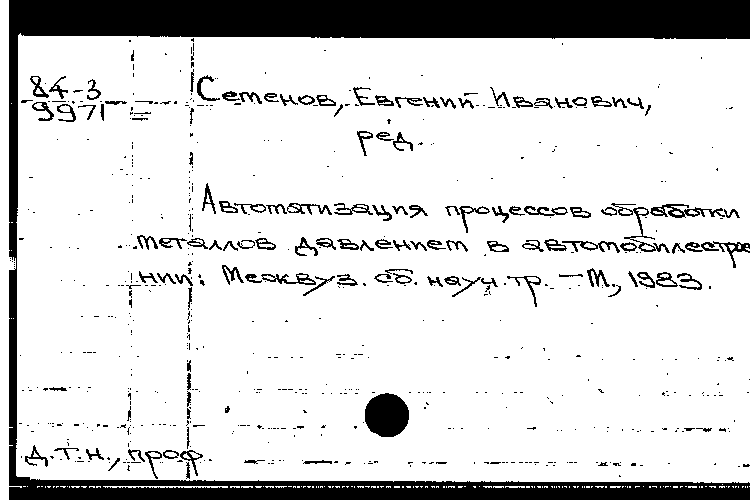 84-3
9971 =
Семенов, Евгений Иванович,
ред.
Автоматизация процессов обработки
металлов давлением в автомобилестрое
нии: Межвуз. сб. науч. тр. – М., 1983.
Д.т.н., проф.